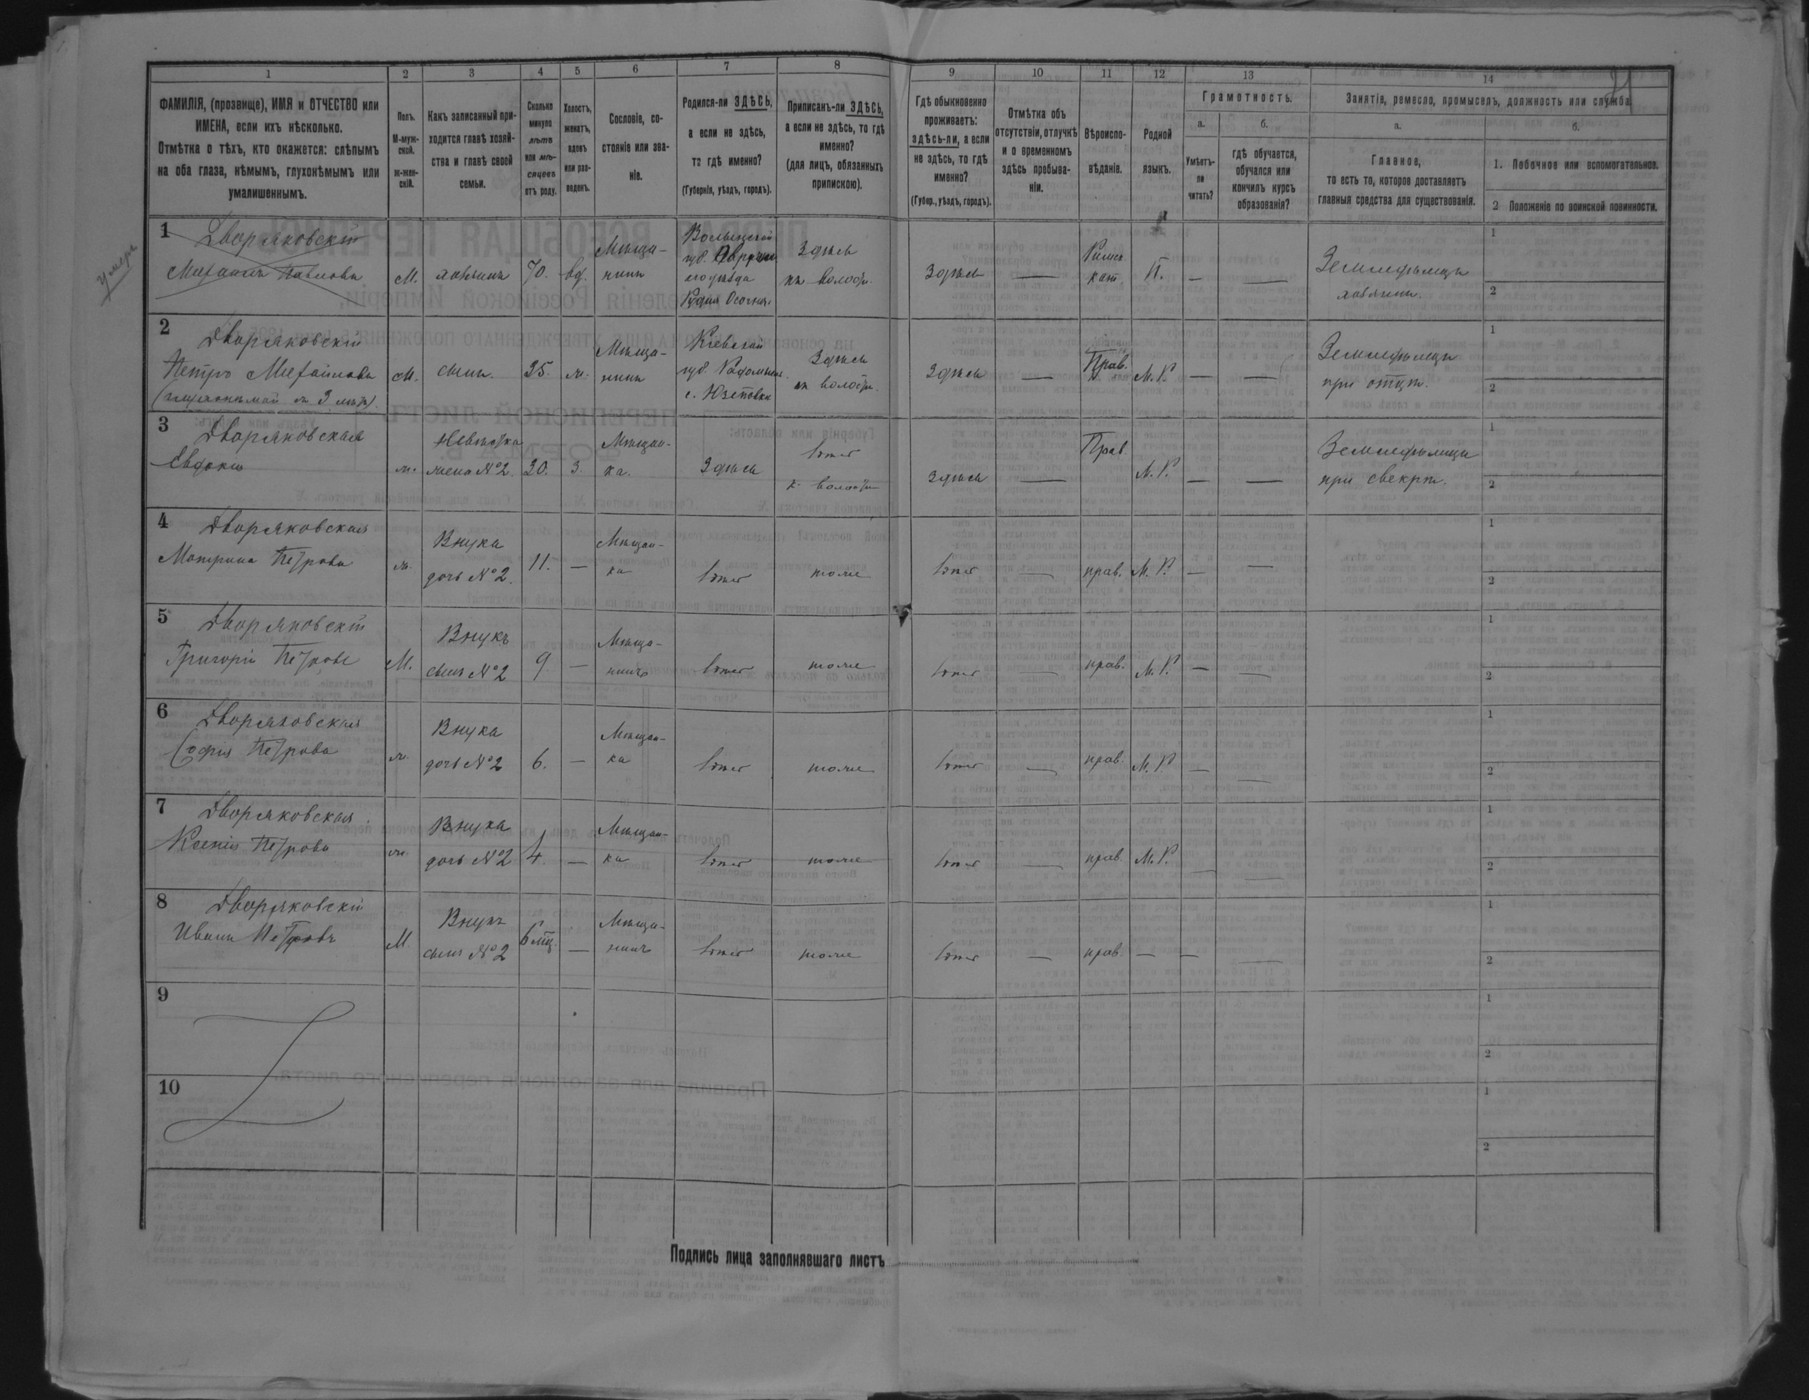 1 2 3 4 5 6 7 8 9 10 11 12 13 14
21
ФАМИЛІЯ, (прозвище), ИМЯ и ОТЧЕСТВО или
ИМЕНА, если ихъ нѣсколько.
Отмѣтка о тѣхъ, кто окажется: слѣпымъ
на оба глаза, нѣмымъ, глухонѣмымъ или
умалишеннымъ.
Полъ.
М-муж-
ской.
ж-жен-
скій.
Какъ записанный при-
ходится главѣ хозяй-
ства и главѣ своей
семьи.
Сколько
минуло
лѣтъ
или мѣ-
сяцевъ
отъ роду.
Холостъ,
женатъ,
вдовъ
или раз-
веденъ.
Сословіе, со-
стояніе или зва-
ніе.
Родился-ли ЗДѢСЬ,
а если не здѣсь,
то гдѣ именно?
(Губернія, уѣздъ, городъ).
Приписанъ-ли ЗДѢСЬ,
а если не здѣсь, то гдѣ
именно?
(для лицъ, обязанныхъ
припискою).
Гдѣ обыкновенно
проживаетъ:
здѣсь-ли, а если
не здѣсь, то гдѣ
именно?
(Губер., уѣздъ, городъ).
Отмѣтка объ
отсутствіи, отлучкѣ
и о временномъ
здѣсь пребыва-
ніи.
Вѣроиспо-
вѣданіе.
Родной
языкъ.
Грамотность.
а.
Умѣетъ-
ли
читать?
б.
гдѣ обучается,
обучался или
кончилъ курсъ
образованія?
Занятія, ремесло, промыселъ, должность или служба.
а.
Главное,
то есть то, которое доставляетъ
главныя средства для существованія.
б.
1. Побочное или вспомогательное.
2 Положеніе по воинской повинности.
умеръ
1 Дворяковскій
Михаилъ Павловъ
М. хозяинъ 70. вд.
Мѣща-
нинъ
Волынской
губ.
уѣзда
Здѣсь
къ волости
Здѣсь —
Римск.
кат. П. — —
Земледѣлецъ
хозяинъ.
1
2
2 Дворяковскій
Петръ Михайловъ
М. сынъ. 35. ж.
Мѣща-
нинъ
Кіевской
губ. Радомысл.
с.
Здѣсь
къ волости.
Здѣсь — Прав. М. Р. — —
Земледѣлецъ
при отцѣ.
1
2
3 Дворяковская
Евдокія
ж.
Невѣстка
жена №2. 30. з.
Мѣщан-
ка.
Здѣсь
тоже
к. волости
Здѣсь — Прав. М. Р. — —
Земледѣлица
при свекрѣ.
1
2
4 Дворяковская
Матрена Петрова
ж.
Внука
дочь №2. 11. —
Мѣщан-
ка
тоже тоже тоже — прав. М. Р. — —
1
2
5 Дворяковскій
Григорій Петровъ
М.
Внукъ
сынъ №2 9 —
Мѣща-
нинъ
тоже тоже тоже — прав. М. Р. — —
1
2
6 Дворяковская
Софія Петрова
ж.
Внука
дочь №2 6. —
Мѣщан-
ка
тоже тоже тоже — прав. М. Р. — —
1
2
7 Дворяковская
Ксенія Петрова
ж.
Внука
дочь №2 4. —
Мѣщан-
ка
тоже тоже тоже — прав. М. Р. — —
1
2
8 Дворяковскій
Иванъ Петровъ
М.
Внукъ
сынъ №2 6 мц —
Мѣща-
нинъ
тоже тоже тоже — прав. — — —
1
2
9
1
2
10
1
2
Подпись лица заполнявшаго листъ